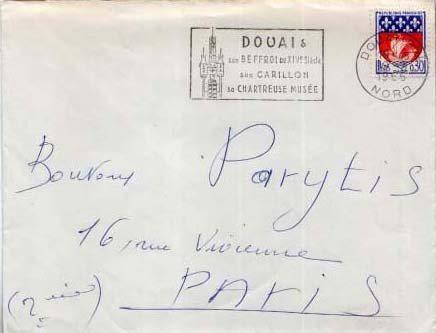 DOUAI &
son BEFFROI du XIVe Siècle
son CARILLON
sa CHARTREUSE MUSÉE
REPUBLIQUE FRANÇAISE
0,30
NORD
Boutons Parytis
16, rue Vivienne
PARIS
(2ème)